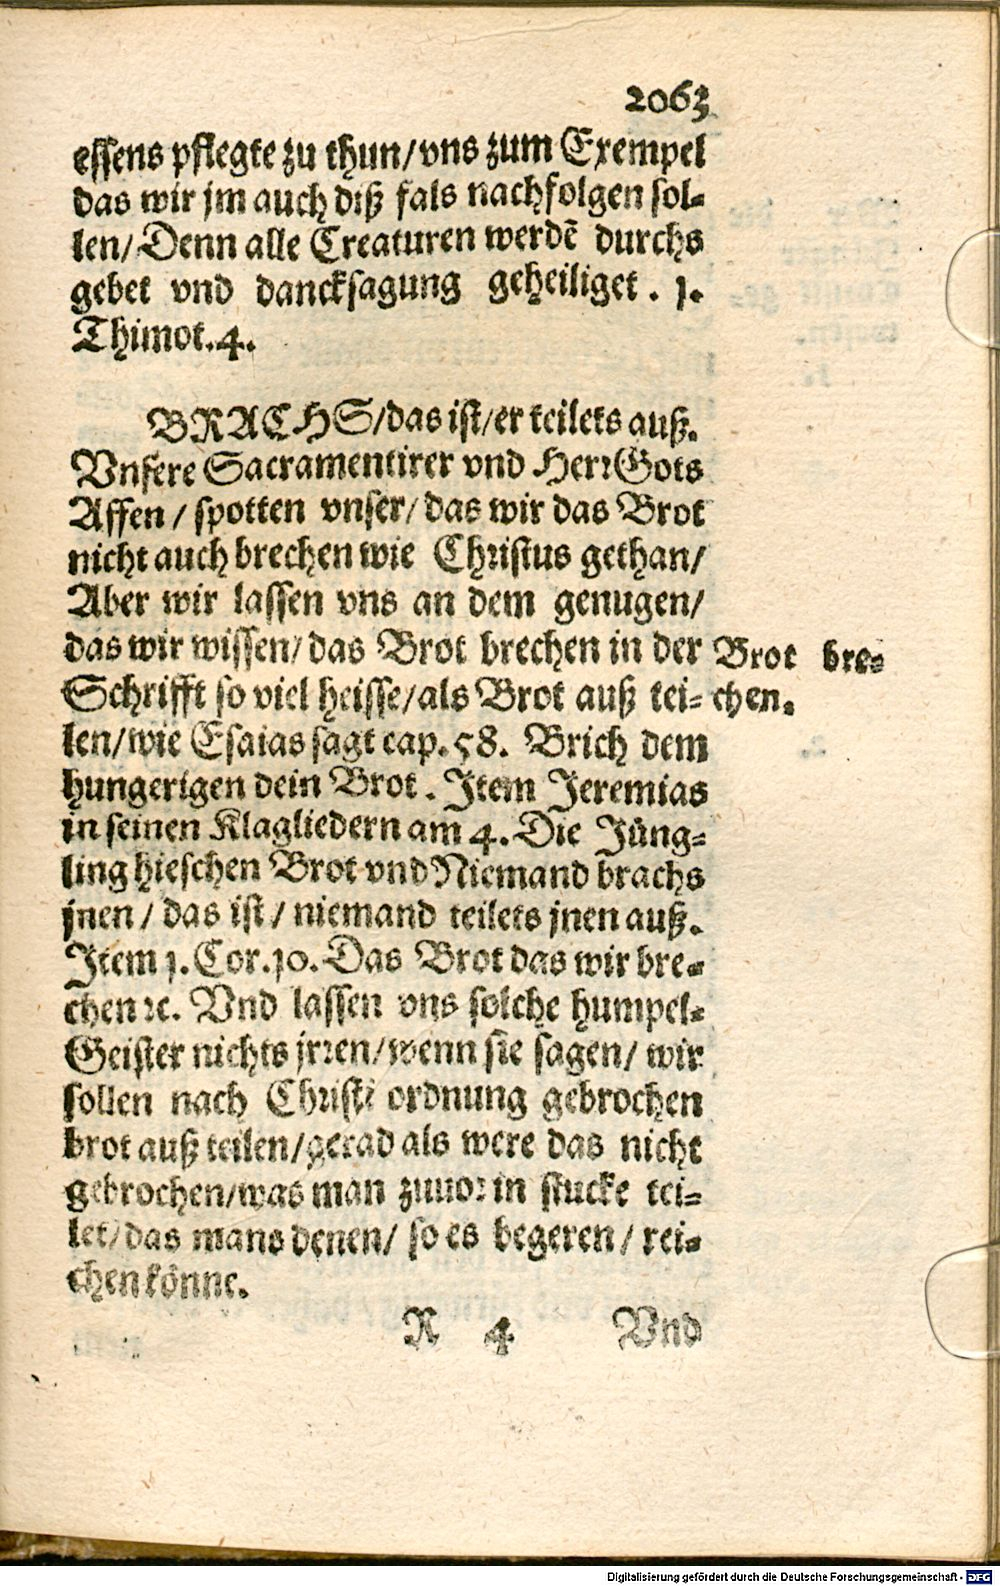 2063
essens pflegte zu thun/vns zum Exempel
das wir jm auch diß fals nachfolgen sol-
len/Denn alle Creaturen werdē durchs
gebet vnd dancksagung geheiliget. 1.
Thimot.4.
BRACHS/das ist/er teilets auß.
Vnsere Sacramentirer vnd HerrGots
Affen/ spotten vnser/ das wir das Brot
nicht auch brechen wie Christus gethan/
Aber wir lassen vns an dem genugen/
das wir wissen/ das Brot brechen in der
Schrifft so viel heisse/als Brot auß tei-
len/wie Esaias sagt cap.58. Brich dem
hungerigen dein Brot. Item Jeremias
in seinen Klagliedern am 4. Die Jüng-
ling hieschen Brot vnd Niemand brachs
jnen/ das ist/ niemand teilets jnen auß.
Item 1.Cor.10. Das Brot das wir bre-
chen ꝛc. Vnd lassen vns solche humpel-
Geister nichts jrren/wenn sie sagen/ wir
sollen nach Christi ordnung gebrochen
brot auß teilen/gerad als were das nicht
gebrochen/was man zuuor in stucke tei-
let/das mans denen/ so es begeren/ rei-
chen könne.
R 4 Vnd
Brot bre-
chen.
Digitalisierung gefördert durch die Deutsche Forschungsgemeinschaft - DFG